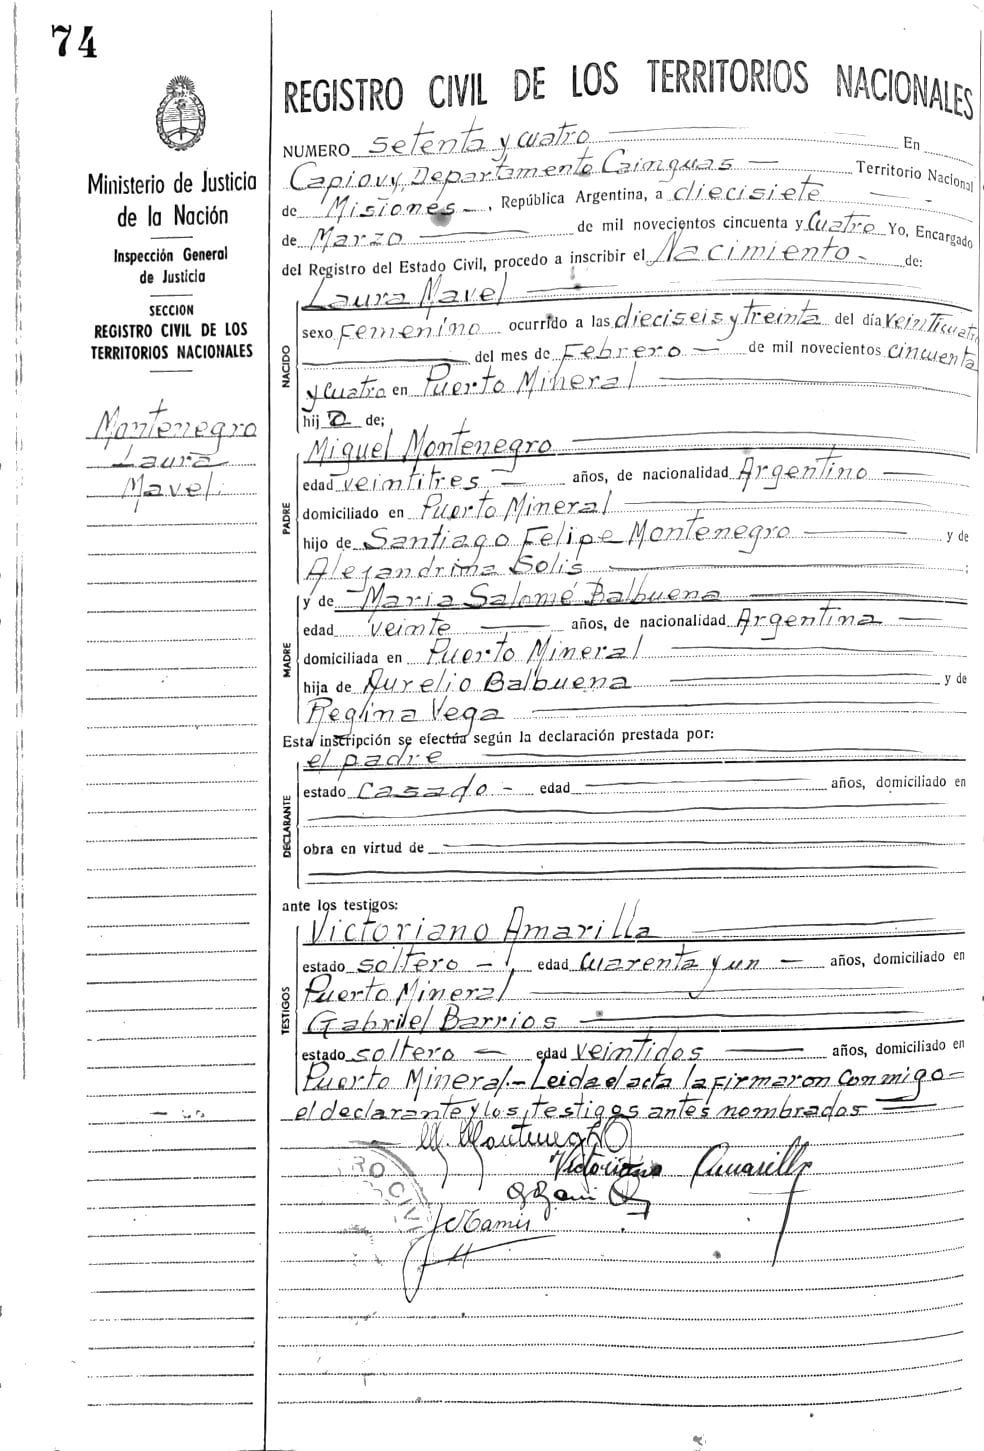 74
Ministerio de Justicia
de la Nación
Inspección General
de Justicia
SECCION
REGISTRO CIVIL DE LOS
TERRITORIOS NACIONALES
Montenegro
Laura
Mavel.
REGISTRO CIVIL DE LOS TERRITORIOS NACIONALES
NUMERO Setenta y cuatro En
Capiovy Departamento Cainguas Territorio Nacional
de Misiones, República Argentina, a diecisiete
de Marzo de mil novecientos cincuenta y Cuatro Yo, Encargado
del Registro del Estado Civil, procedo a inscribir el Nacimiento de:
Laura Mavel
NACIDO
sexo Femenino ocurrido a las dieciseis y treinta del día veinticuatro
del mes de Febrero de mil novecientos cincuenta
y cuatro en Puerto Mineral
hija de;
Miguel Montenegro
PADRE
edad veintitres años, de nacionalidad Argentino
domiciliado en Puerto Mineral
hijo de Santiago Felipe Montenegro y de
Alejandrina Solis ;
y de Maria Salomé Balbuena
MADRE
edad veinte años, de nacionalidad Argentina
domiciliada en Puerto Mineral
hija de Aurelio Balbuena y de
Regina Vega
Esta inscripción se efectúa según la declaración prestada por:
el padre
DECLARANTE
estado casado - edad años, domiciliado en
obra en virtud de
ante los testigos:
Victoriano Amarilla
TESTIGOS
estado soltero - , edad cuarenta y un - años, domiciliado en
Puerto Mineral
Gabriel Barrios
estado soltero - edad veintidos años, domiciliado en
Puerto Mineral.- Leida el acta la firmaron conmigo
el declarante y los testigos antes nombrados
M. Montenegro
Victoriano Amarilla